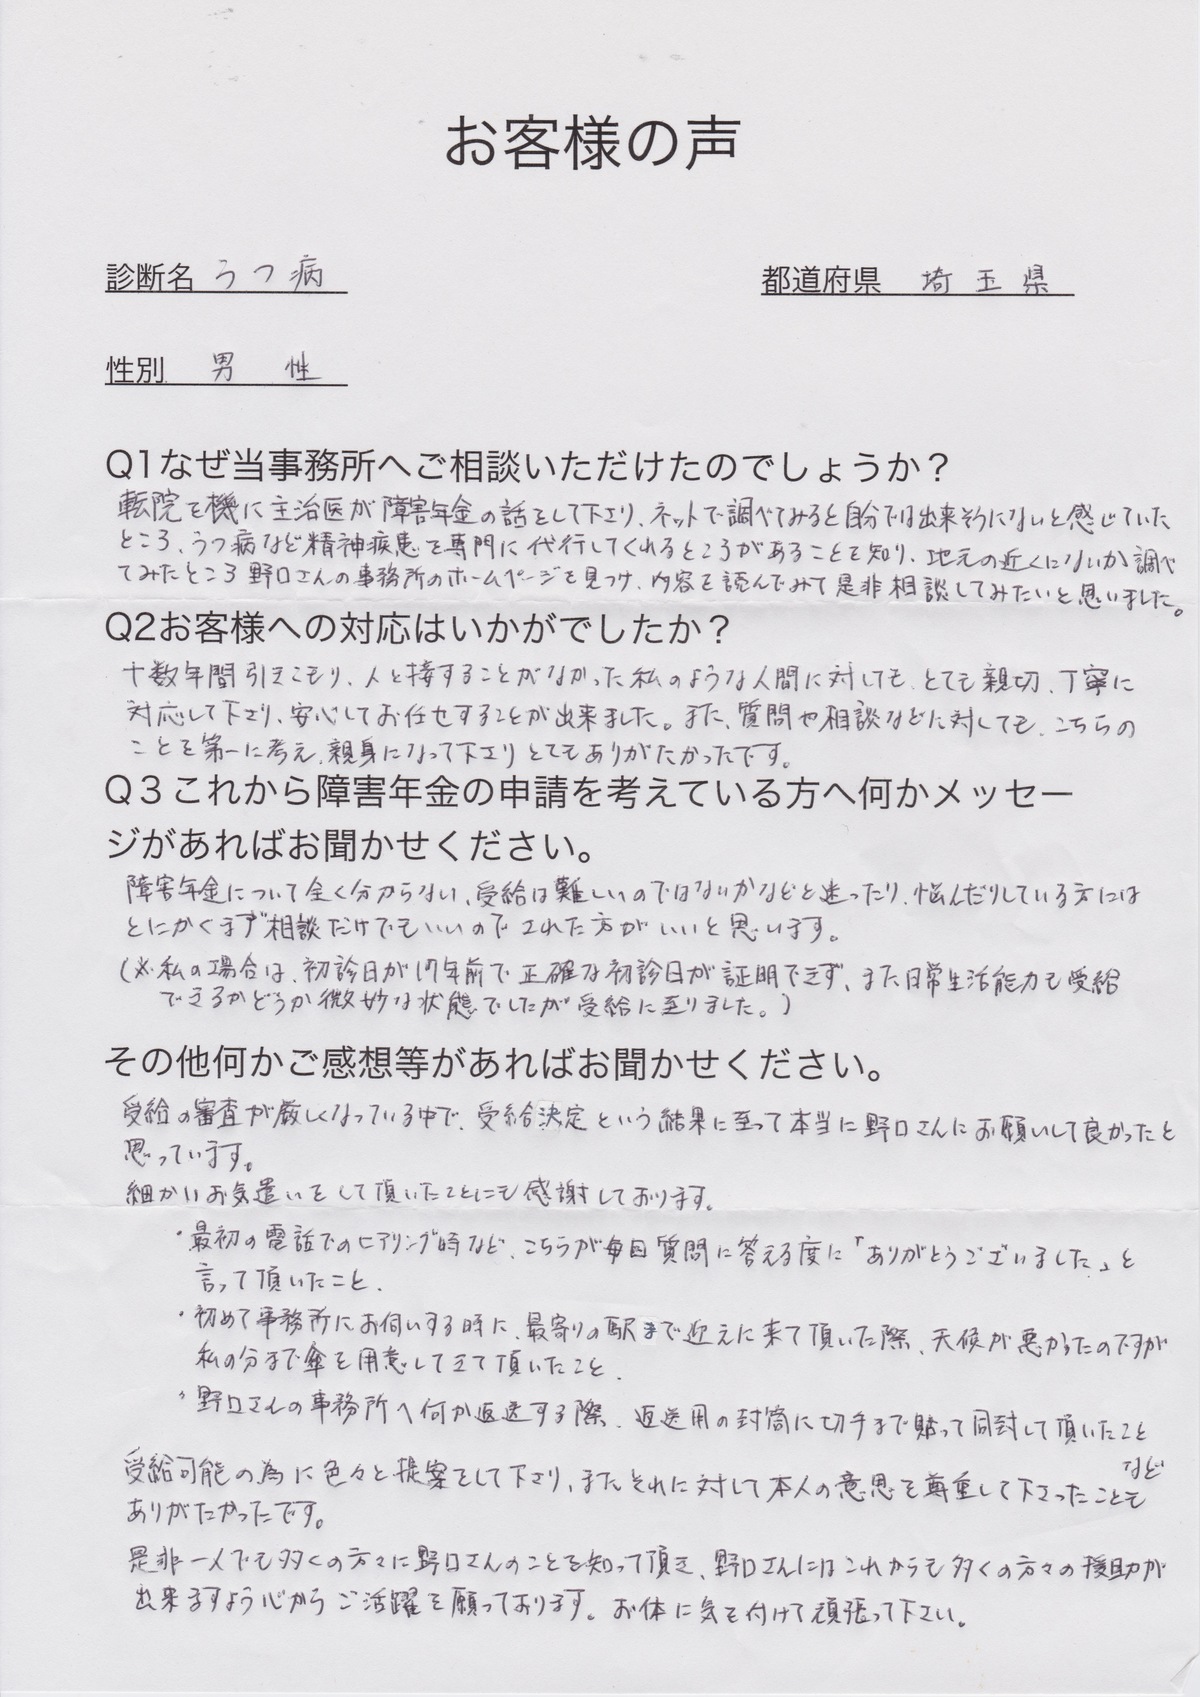 お客様の声
診断名 うつ病
都道府県 埼玉県
性別 男性
Q1なぜ当事務所へご相談いただけたのでしょうか？
転院を機に主治医が障害年金の話をして下さり、ネットで調べてみると自分では出来そうにないと感じていた
ところ、うつ病など精神疾患を専門に代行してくれるところがあることを知り、地元の近くにないか調べ
てみたところ野口さんの事務所のホームページを見つけ、内容を読んでみて是非相談してみたいと思いました。
Q2お客様への対応はいかがでしたか？
十数年間引きこもり、人と接することがなかった私のような人間に対しても、とても親切、丁寧に
対応して下さり、安心してお任せすることが出来ました。また、質問や相談などに対しても、こちらの
ことを第一に考え、親身になって下さりとてもありがたかったです。
Q３これから障害年金の申請を考えている方へ何かメッセー
ジがあればお聞かせください。
障害年金について全く分からない、受給は難しいのではないかなどと迷ったり、悩んだりしている方には
とにかくまず相談だけでもいいのでされた方がいいと思います。
(※私の場合は、初診日が17年前で正確な初診日が証明できず、また日常生活能力も受給
できるかどうか微妙な状態でしたが受給に至りました。)
その他何かご感想等があればお聞かせください。
受給の審査が厳しくなっている中で、受給決定という結果に至って本当に野口さんにお願いして良かったと
思っています。
細かいお気遣いをして頂いたことにも感謝しております。
・最初の電話でのヒアリング時など、こちらが毎回質問に答える度に「ありがとうございました」と
言って頂いたこと。
・初めて事務所にお伺いする時に、最寄りの駅まで迎えに来て頂いた際、天候が悪かったのですが
私の分まで傘を用意して立て頂いたこと。
・野口さんの事務所へ何か返送する際、返送用の封筒に切手まで貼って同封して頂いたこと
など
受給可能の為に色々と提案をして下さり、またそれに対して本人の意思を尊重して下さったことも
ありがたかったです。
是非一人でも多くの方々に野口さんのことを知って頂き、野口さんにはこれからも多くの方々の援助が
出来ますよう心からご活躍を願っております。お体に気を付けて頑張って下さい。